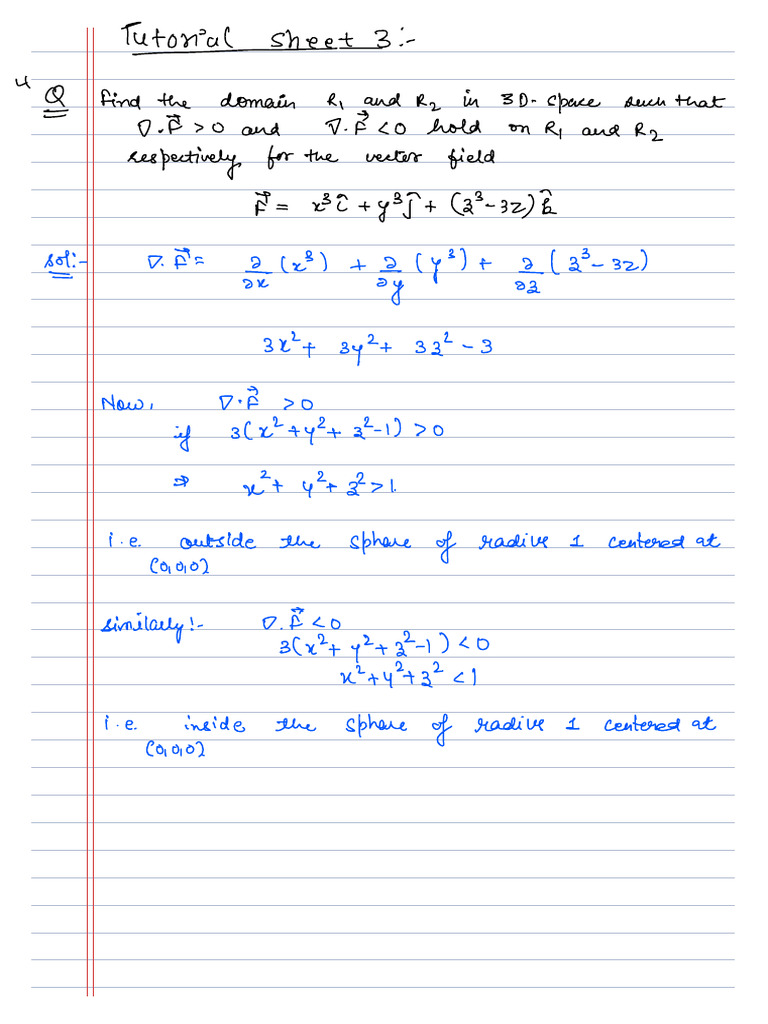 Tutorial sheet 3:-
4
Q Find the domain R₁ and R₂ in 3D-space such that
∇.F⃗ > 0 and ∇.F⃗ < 0 hold on R₁ and R₂
respectively for the vector field
F⃗ = x³î + y³ĵ + (z³-3z)k̂
Sol:- ∇.F⃗ = ∂/∂x (x³) + ∂/∂y (y³) + ∂/∂z (z³-3z)
3x² + 3y² + 3z² - 3
Now, ∇.F⃗ > 0
if 3(x²+y²+z²-1) > 0
⇒ x² + y² + z² > 1.
i.e. outside the sphare of radius 1 centered at
(0,0,0)
similarly!- ∇.F⃗ < 0
3(x²+y²+z²-1) < 0
x²+y²+z² < 1
i.e. inside the sphare of radius 1 centered at
(0,0,0)